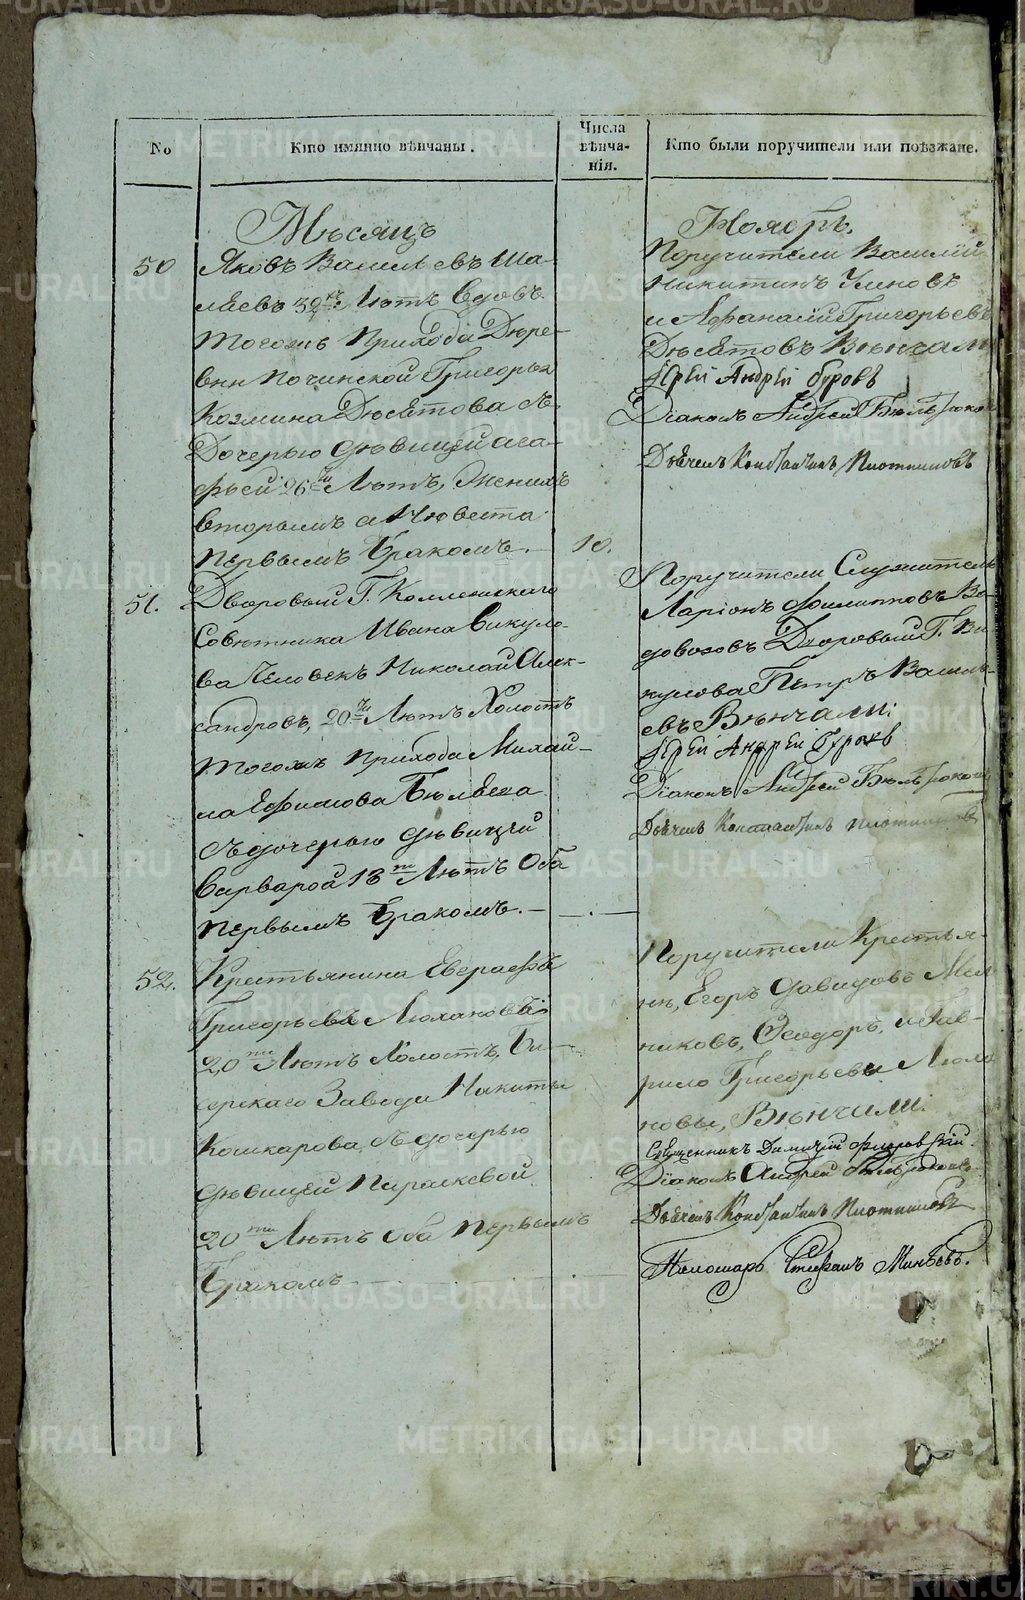 №
Кто имянно вѣнчаны.
Числа
вѣнча-
нія.
Кто были поручители или поѣзжане.
Мѣсяцъ
Ноябрь.
50
Яковъ Васильевъ Ша-
ляевъ 32хъ Лѣтъ Вдовъ
тогожъ Прихода Дере-
вни Починской Григорья
Козмина Дѣсятова съ
Дочерью дѣвицей Ага-
фьей 26ти Лѣтъ, Женихъ
вторымъ а Невѣста
первымъ бракомъ.
10.
Поручители Василій
Никитинъ
и Афанасій Григорьевъ
Дѣсятовъ Вѣнчали
Іерей Андрей Буровъ
Діаконъ Андрей
Дьячекъ Константинъ Плотниковъ
51.
Дворовый Г. Коллежскаго
Совѣтника Ивана Викуло-
ва Человекъ Николай Алек-
сандровъ, 20ти Лѣтъ Холостъ
тогожъ Прихода Михаи-
ла Ефимова
съ дочерью дѣвицей
Варварой 18ти Лѣтъ Оба
первымъ бракомъ.
Поручители Служитель
Ларіонъ Филипповъ Во-
довозовъ Дворовый Г. Ви-
кулова Петръ Василь-
евъ Вѣнчали:
Іерей Андрей Буровъ
Діаконъ Андрей
Дьячекъ Константинъ Плотниковъ
52.
Крестьянина Евграфа
Григорьева
20ти Лѣтъ Холостъ, Би-
серскаго Завода Никиты
Кошкарова, съ дочерью
дѣвицей Парасковой
20ти Лѣтъ Оба первымъ
бракомъ
Поручители Крестья-
не, Егоръ Давидовъ Мел-
никовъ, Ѳеодоръ, и Гав-
рило Григорьевы
Вѣнчали:
Священникъ Димитрій
Діаконъ Андрей
Дьячекъ Константинъ Плотниковъ
Пономарь Стефанъ Минѣевъ.
METRIKI.GASO-URAL.RU